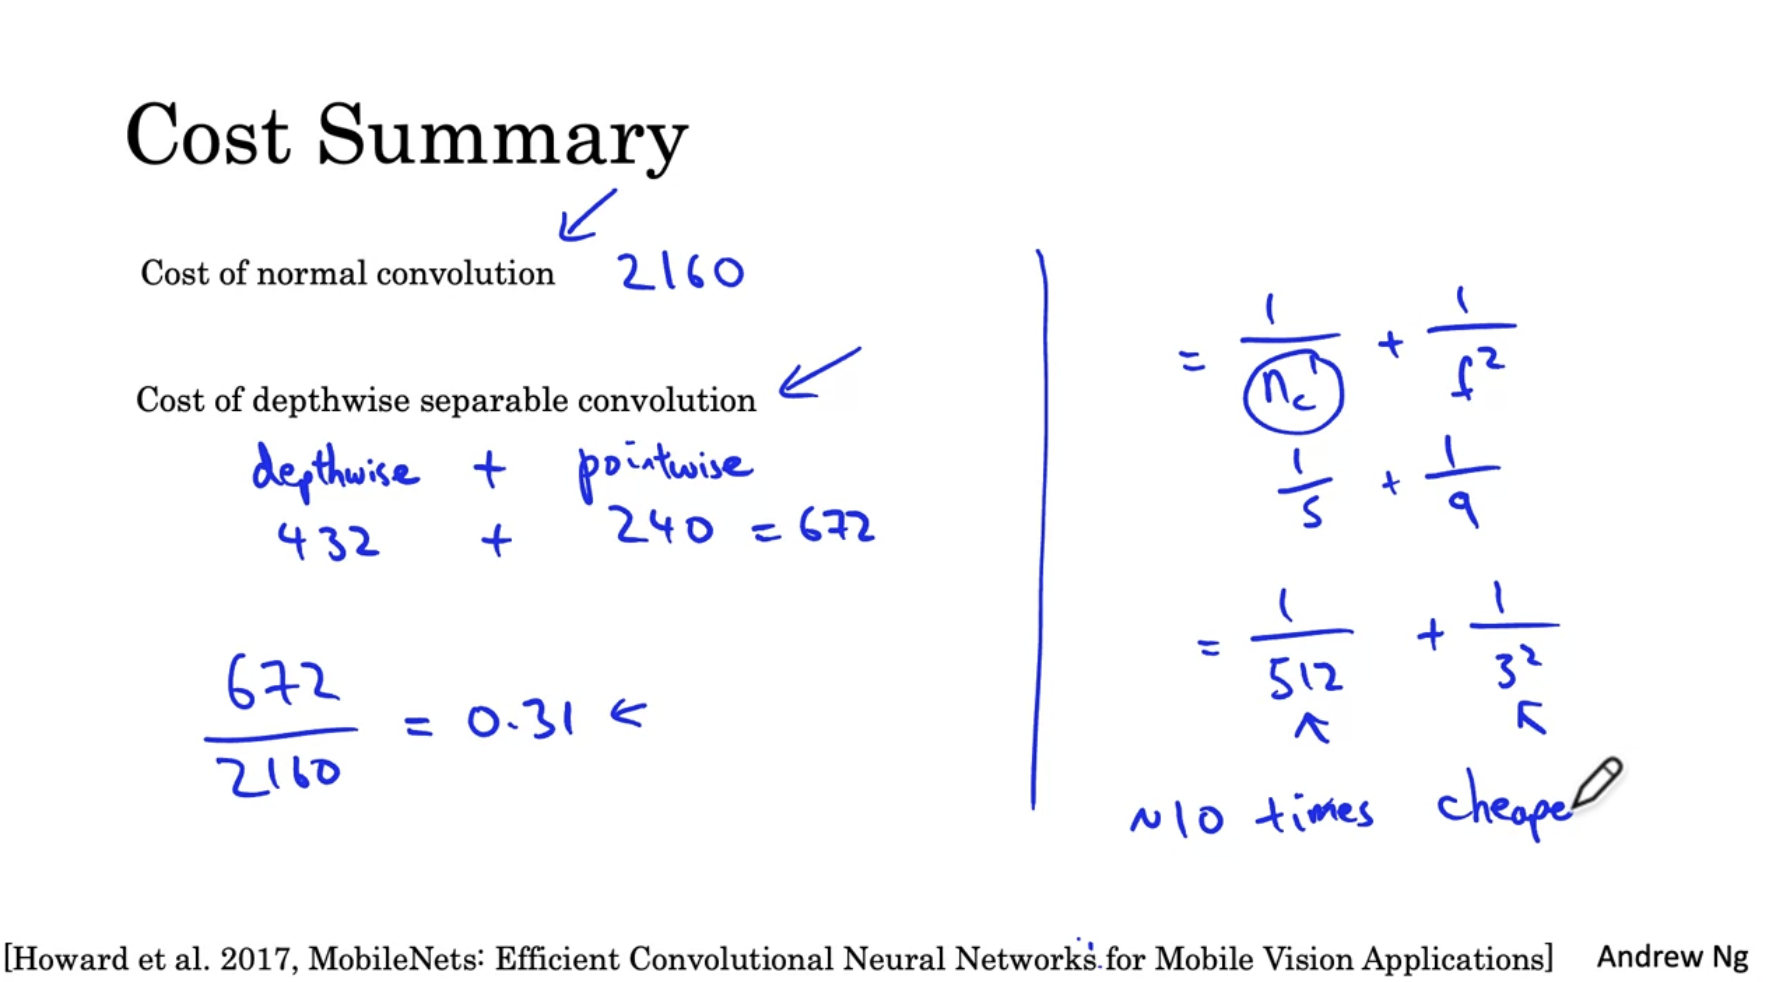 Cost Summary
Cost of normal convolution 2160
Cost of depthwise separable convolution
depthwise + pointwise
432 + 240 = 672
672
2160
= 0.31 ←
= 1/n_c' + 1/f²
1/5 + 1/9
= 1/512 + 1/3²
~10 times cheape
[Howard et al. 2017, MobileNets: Efficient Convolutional Neural Networks for Mobile Vision Applications] Andrew Ng